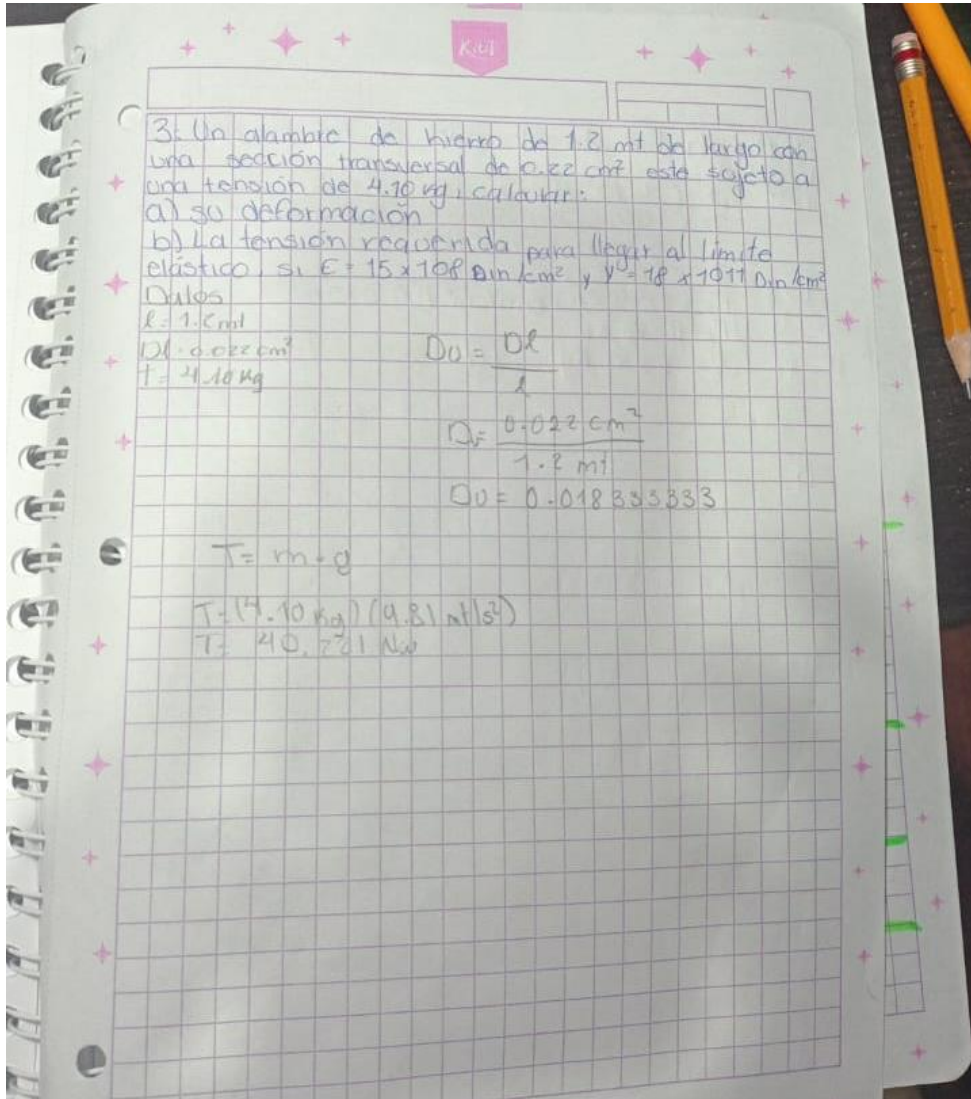 KIUT
3. Un alambre de hierro de 1.2 mt de largo con
una sección transversal de 0.22 cm² este sujeto a
una tensión de 4.10 kg, calcular:
a) su deformación
b) La tensión requerida para llegar al límite
elástico si E = 15 x 108 Din/cm², y Y = 18 x 1011 Din/cm²
Datos
l = 1.2 mt
Dl = 0.022 cm²
T = 4.10 kg
DU = Dl / l
D = 0.022 cm² / 1.2 mt
DU = 0.018333333
T = m · g
T = (4.10 kg) (9.81 mt/s²)
T = 40.221 Nw